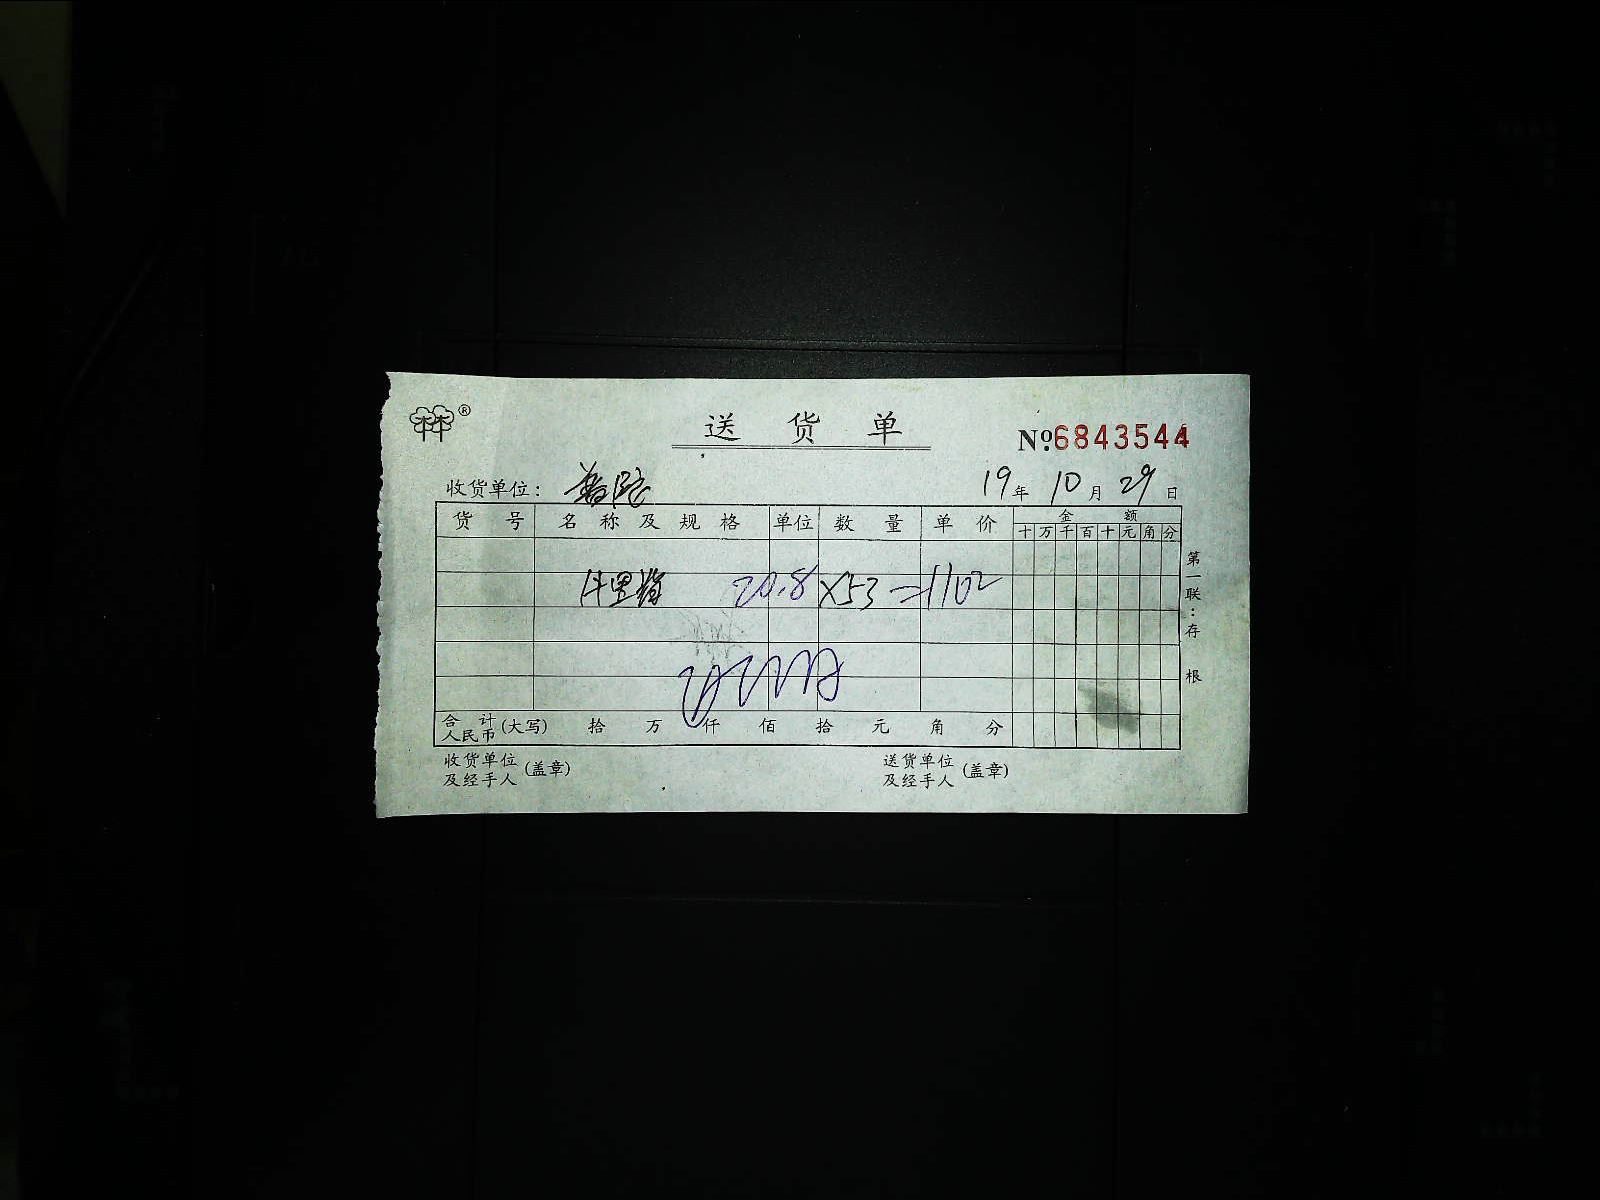 ®
送货单
№6843544
收货单位：普陀 19年10月29日
货号 名称及规格 单位 数量 单价 金额
十万千百十元角分
20.8×53=1102
合计人民币(大写) 拾 万 仟 佰 拾 元 角 分
收货单位及经手人(盖章) 送货单位及经手人(盖章)
第一联：存根